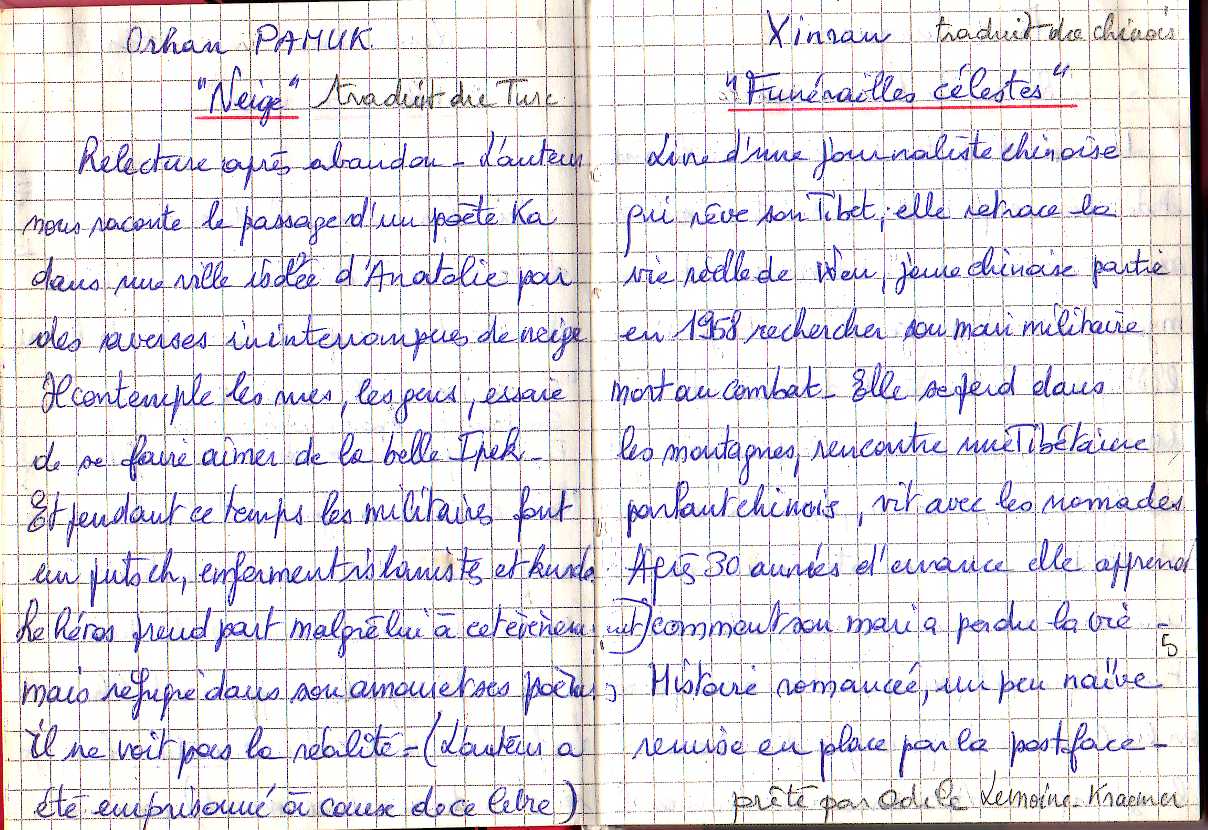 Orhan PAMUK
"Neige" traduit du Turc
Relecture après abandon - L'auteur
nous raconte le passage d'un poète Ka
dans une ville isolée d'Anatolie par
des averses ininterrompues de neige
Il contemple les rues, les gens, essaie
de se faire aimer de la belle Ipek -
Et pendant ce temps les militaires font
un putsch, enferment islamistes et kurdes
Le héros prend part malgré lui à cet évènement
mais réfugié dans son amour et ses poèmes
il ne voit pas la réalité - (L'auteur a
été emprisonné à cause de ce libre)
Xinran traduit du chinois
"Funérailles célestes"
Livre d'une journaliste chinoise
qui rêve son Tibet, elle retrace la
vie réelle de Wen, jeune chinoise partie
en 1958 rechercher son mari militaire
mort au combat - Elle se perd dans
les montagnes, rencontre une Tibétaine
parlant chinois, vit avec les nomades
Après 30 années d'errance elle apprend
comment son mari a perdu la vie -
5
Histoire romancée, un peu naïve
remise en place par la postface -
prêté par Odile Lemoine-Kraemer